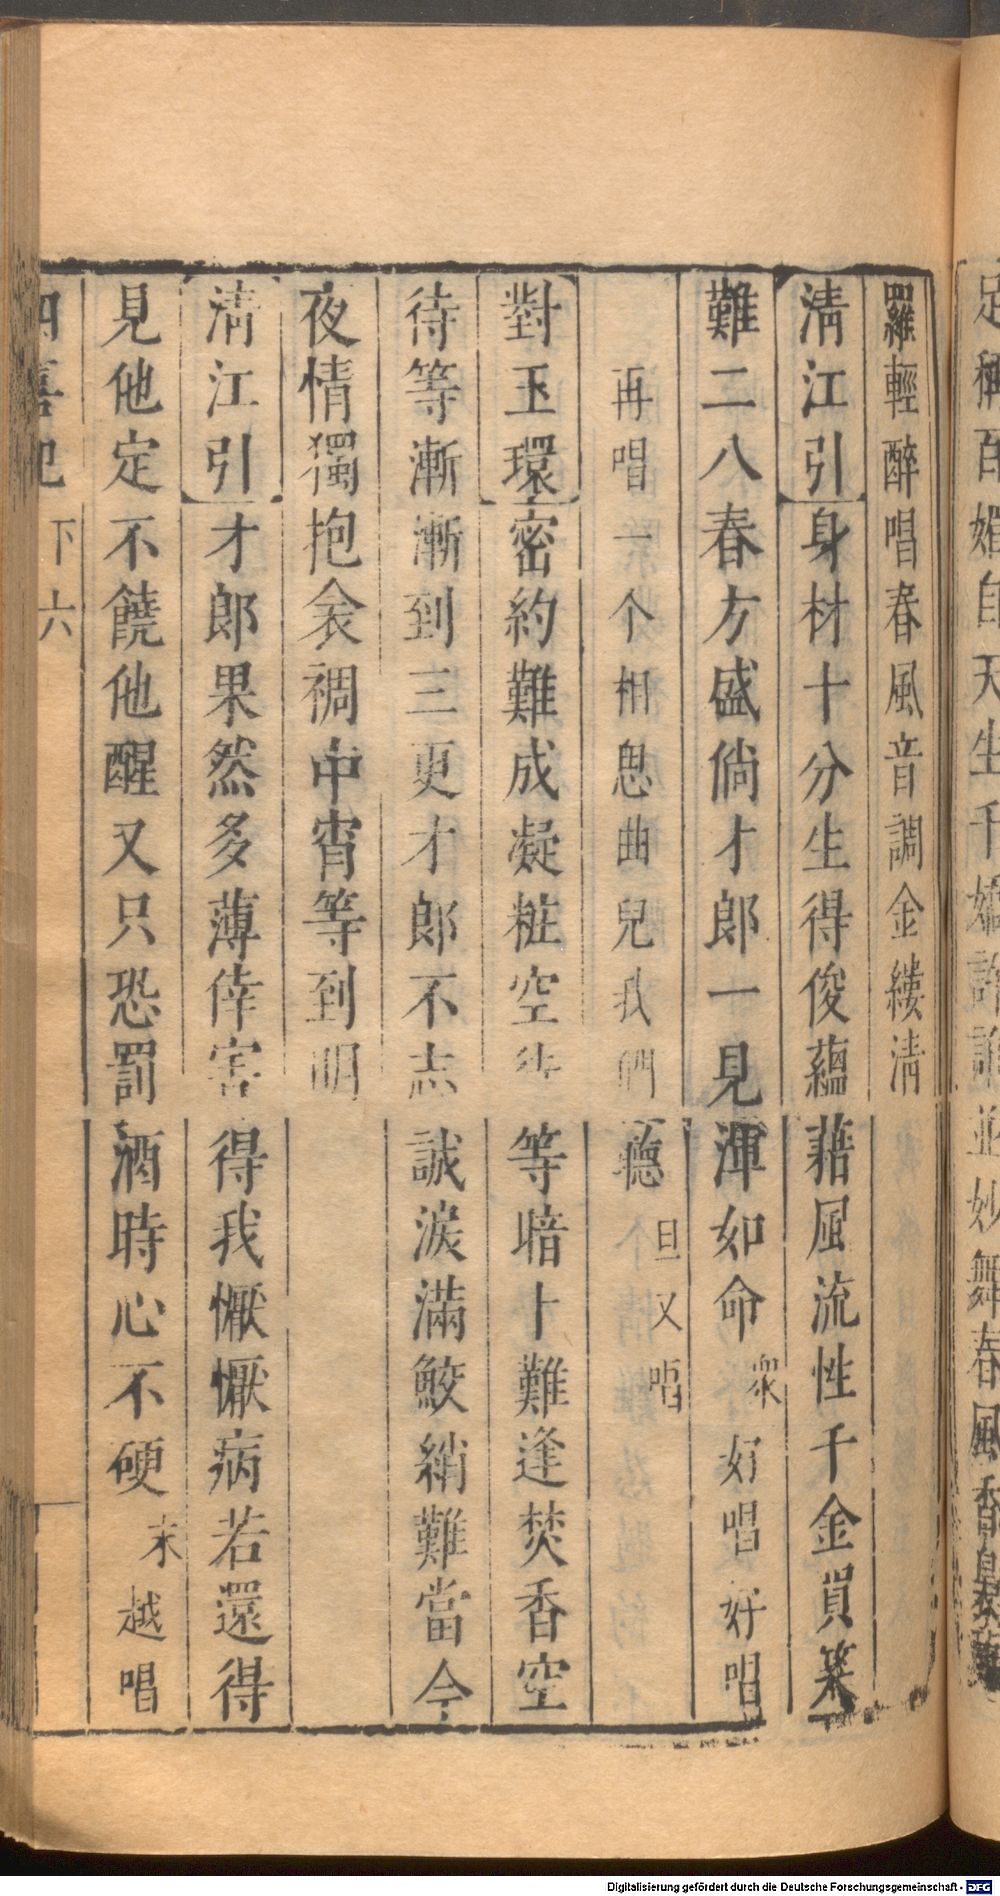 羅輕醉唱春風音調金縷清
清江引身材十分生得俊蘊藉風流性千金買笑
難二八春方盛倘才郎一見渾如命衆好唱好唱
再唱一个相思曲兒我們聽旦又唱
對玉環密約難成凝粧空待等暗卜難逢焚香空
待等漸漸到三更才郎不志誠淚滿鮫綃難當今
夜情獨抱衾裯中宵等到明
清江引才郎果然多薄倖害得我懨懨病若還得
見他定不饒他醒又只恐罰酒時心不硬末越唱
四喜記 下 六
足稱百媚自天生千嬌許誰並妙舞春風香
Digitalisierung gefördert durch die Deutsche Forschungsgemeinschaft - DFG